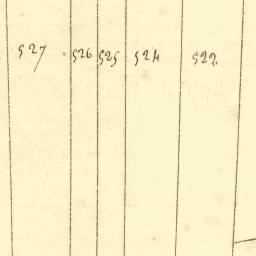 527 526 525 524 522